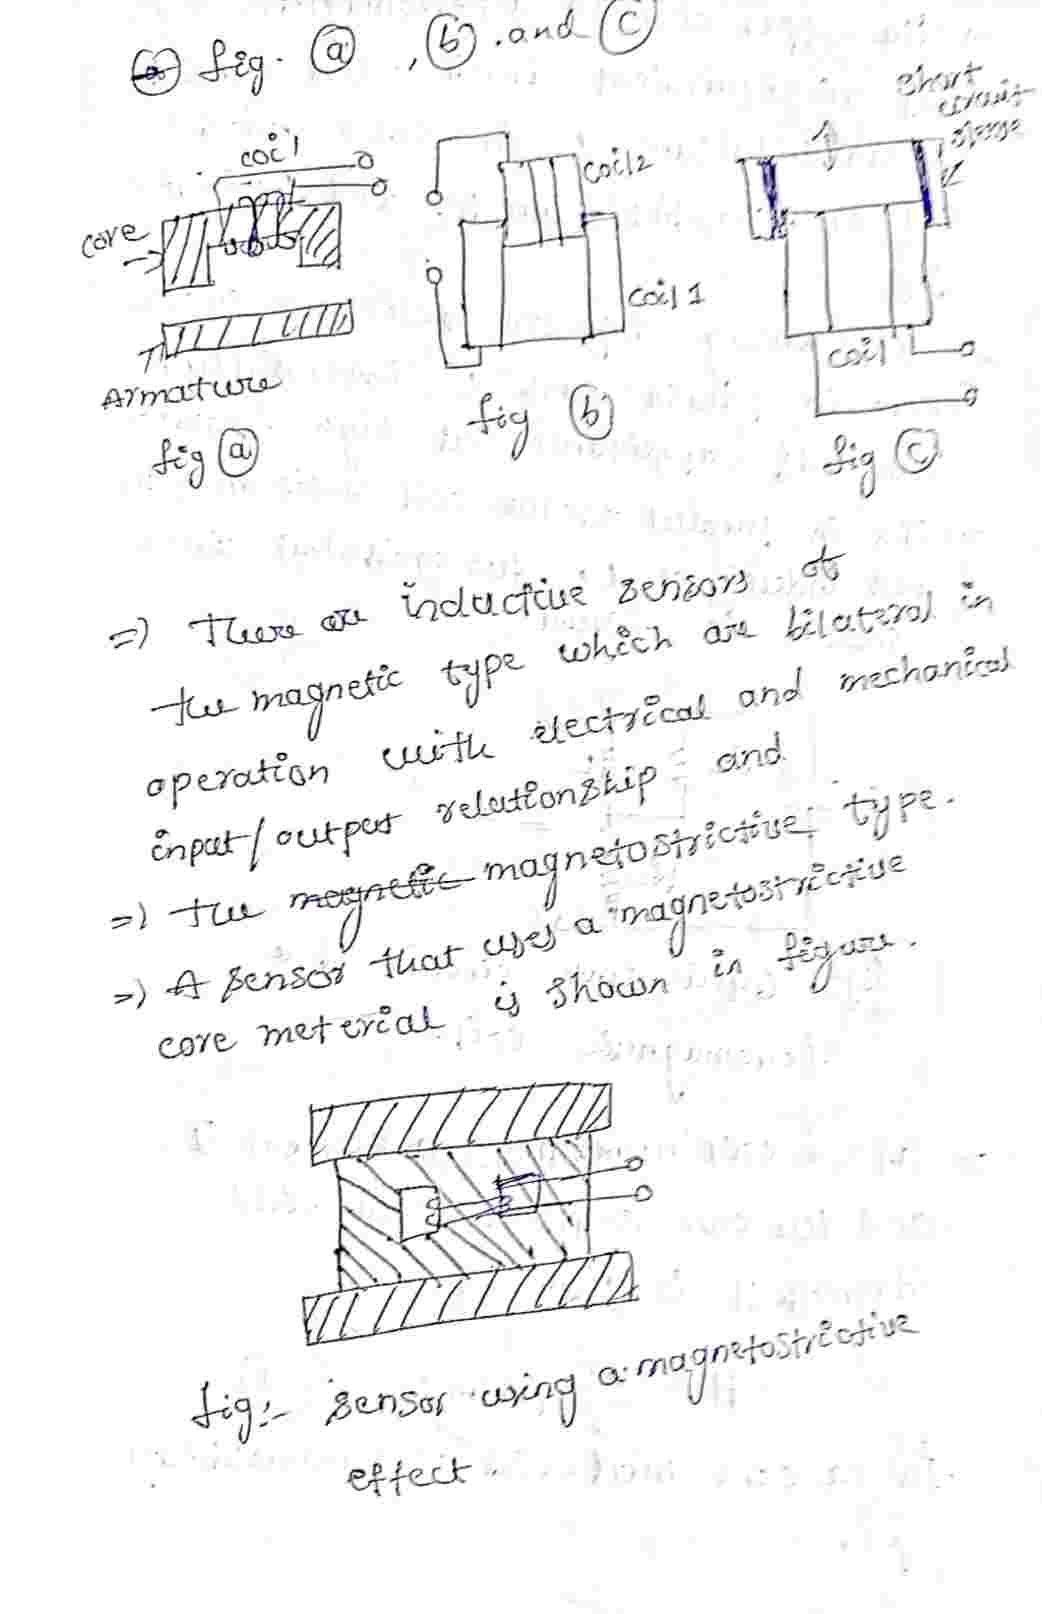 fig. (a) , (b) . and (c)
coil
core
Armature
fig (a)
coil2
coil 1
fig (b)
short
circuit
coil
fig (c)
=) There are inductive sensors of
the magnetic type which are bilateral in
operation with electrical and mechanical
input/output relationship and
=) the magnetic magnetostrictive type.
=) A sensor that uses a magnetostrictive
core meterial is shown in figure.
fig:- sensor using a magnetostrictive
effect.